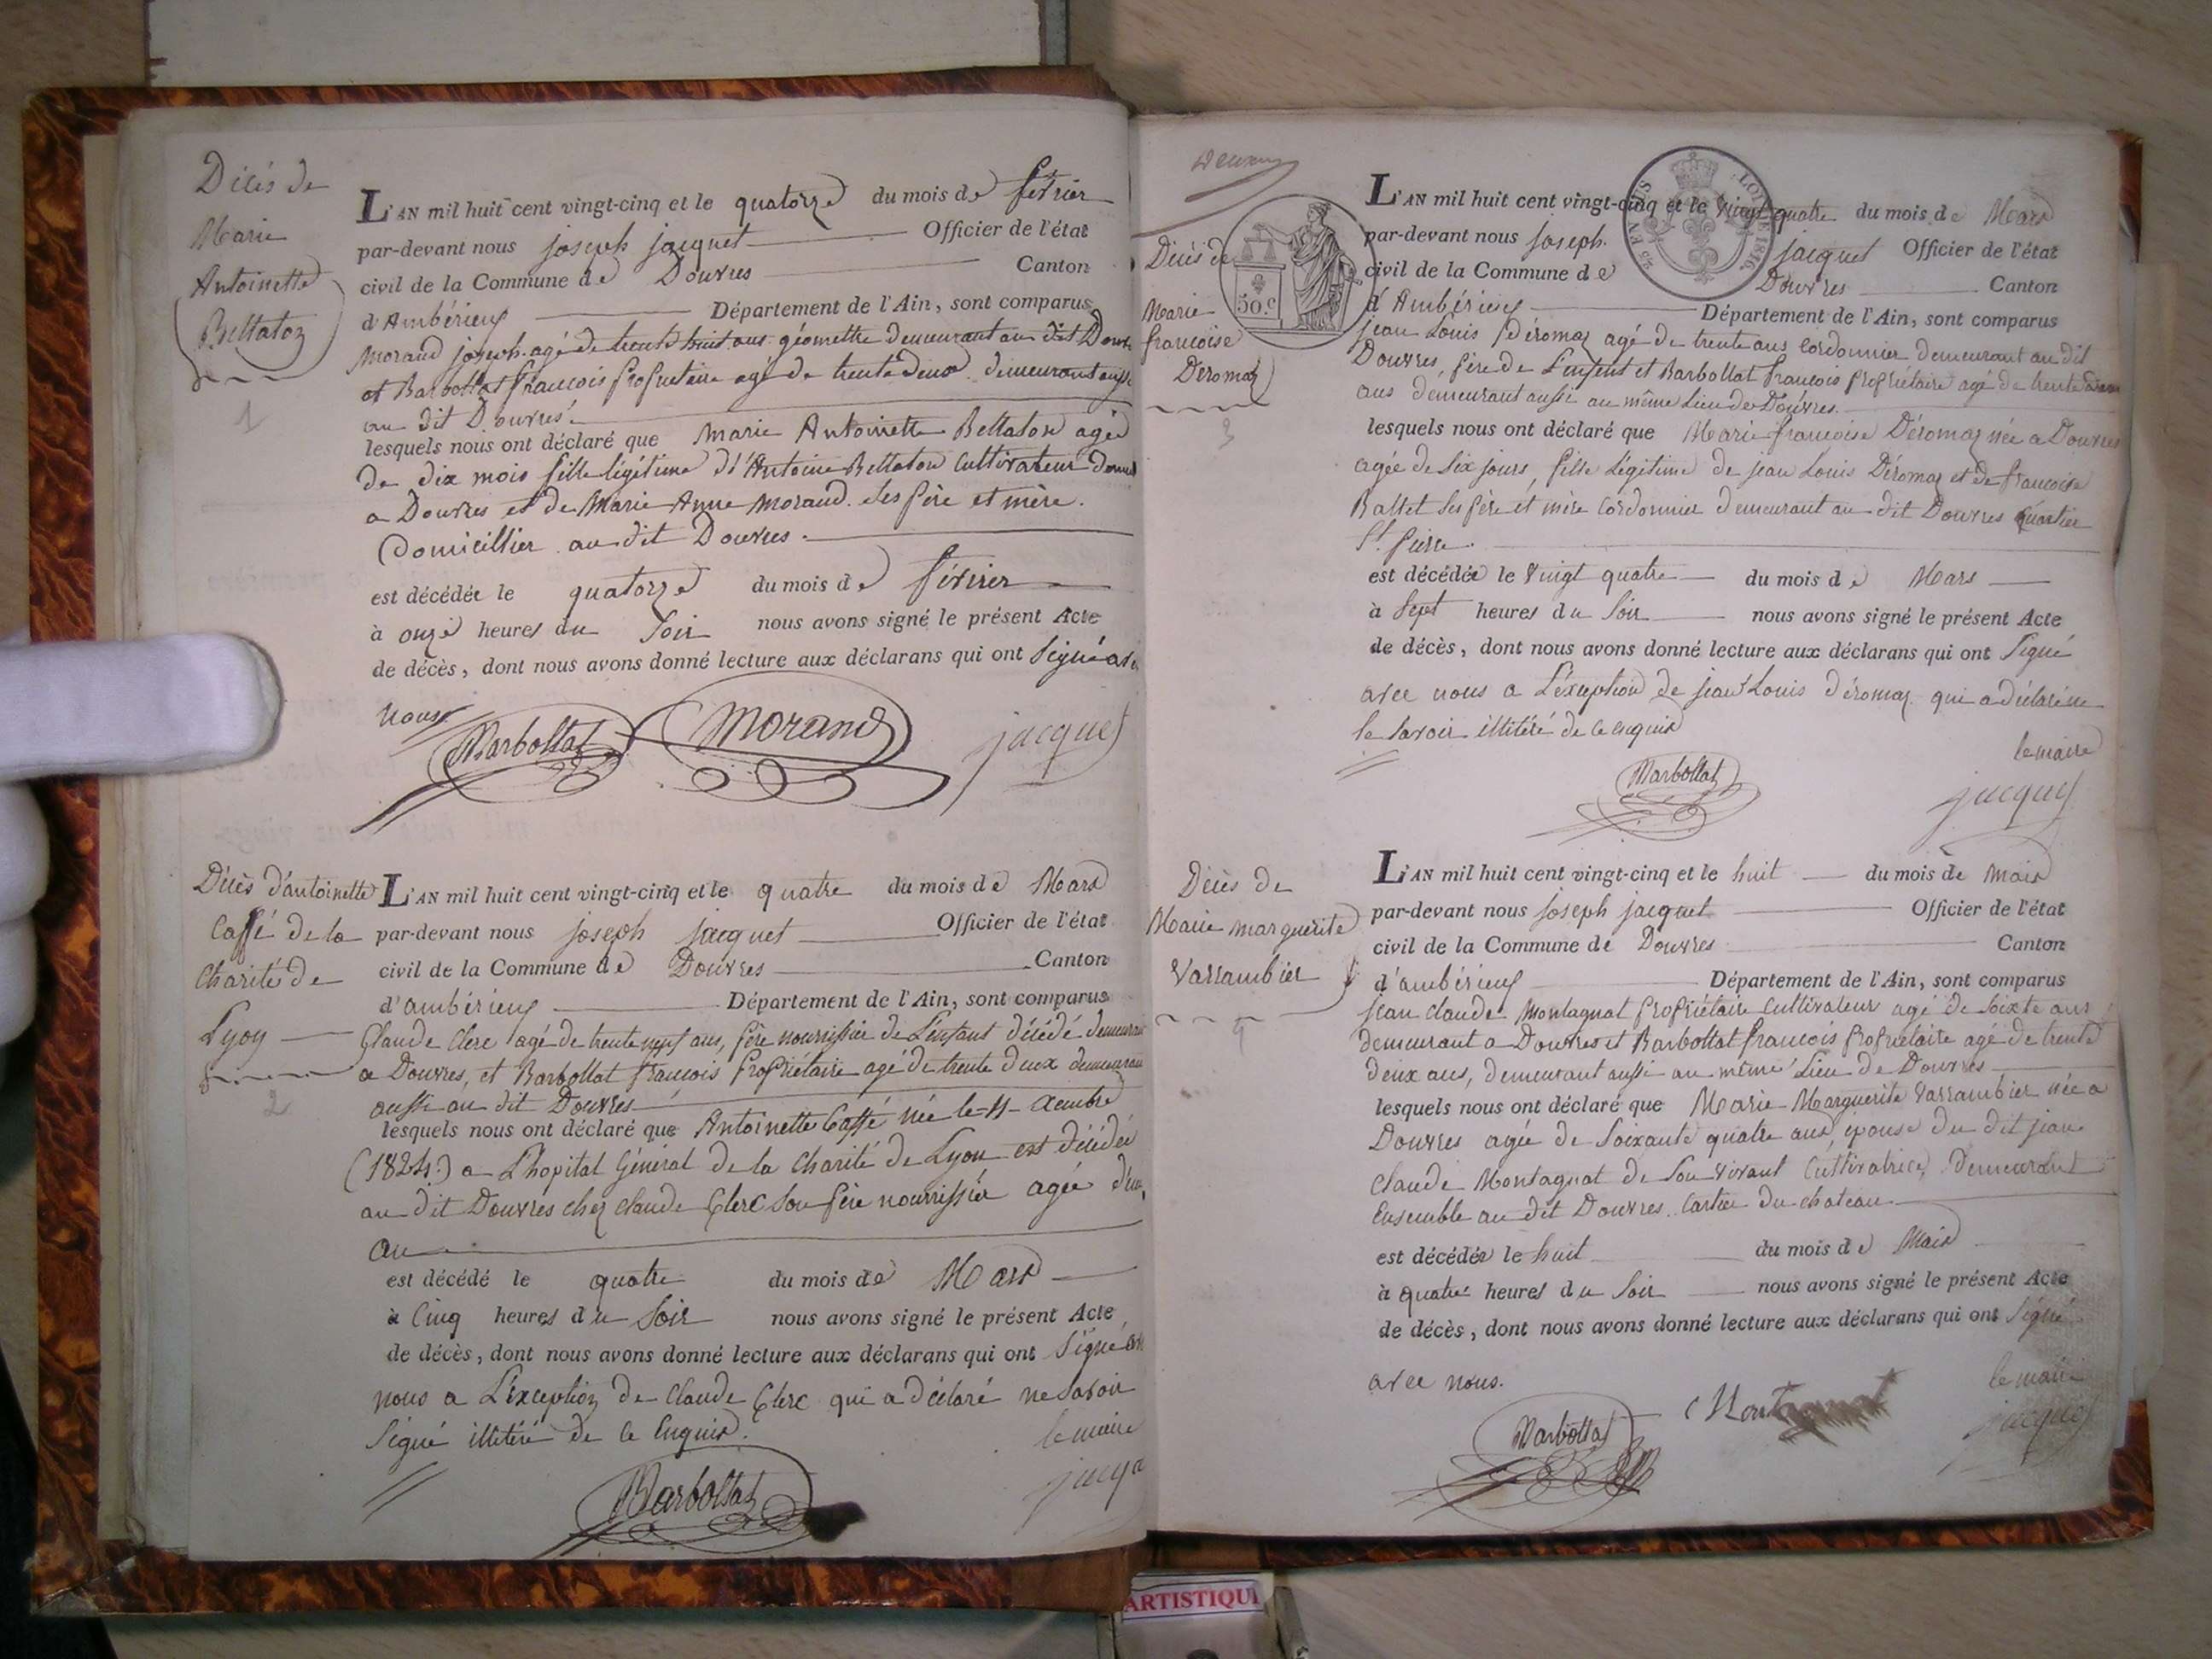 Décès de
Marie
Antoinette
Bellaton
1
L'AN mil huit cent vingt-cinq et le quatorze du mois de février
par-devant nous joseph jacquet Officier de l'état
civil de la Commune de Douvres Canton
d'Ambérieux Département de l'Ain, sont comparus
Morand joseph agé de trente huit ans géomettre demeurant au dit Douvres
et Barbollat françois proprietaire agé de trente deux demeurant aussi
au dit Douvres.
lesquels nous ont déclaré que Marie Antoinette Bellaton agée
de dix mois fille légitime d'Antoine Bellaton Cultivateur
a Douvres et de Marie Anne Morand. Ses père et mère.
Domicillier au dit Douvres.
est décédée le quatorze du mois de février
à onze heures du Soir nous avons signé le présent Acte
de décès, dont nous avons donné lecture aux déclarans qui ont Signé avec
Nous
Barbollat Morand jacquet
Décès d'antoinette
Caffé de la
Charité de
Lyon
2
L'AN mil huit cent vingt-cinq et le quatre du mois de Mars
par-devant nous joseph jacquet Officier de l'état
civil de la Commune de Douvres Canton
d'ambérieux Département de l'Ain, sont comparus
Claude Clerc agé de trente neuf ans, père nourrissier de L'enfant décédé demeurant
a Douvres, et Barbollat françois Propriétaire agé de trente deux demeurant
aussi au dit Douvres
lesquels nous ont déclaré que Antoinette Caffé née le
(1824) a L'hopital Général de la Charité de Lyon est décédée
au dit Douvres chez Claude Clerc son père nourrissier agée d'un
an
est décédé le quatre du mois de Mars
à Cinq heures du Soir nous avons signé le présent Acte
de décès, dont nous avons donné lecture aux déclarans qui ont Signé avec
nous a L'exception de Claude Clerc qui a déclaré ne Savoir
Signé illitéré de ce Enquis.
le maire
Barbollat jacquet
Décès de
Marie
françoise
Déromaz
3
50 c
L'AN mil huit cent vingt-cinq et le Vingt quatre du mois de Mars
par-devant nous joseph jacquet Officier de l'état
civil de la Commune de Douvres Canton
d'Ambérieux Département de l'Ain, sont comparus
jean Louis Déromaz agé de trente ans Cordonnier demeurant au dit
Douvres, père de L'enfent et Barbollat françois propriétaire agé de trente deux
ans demeurant aussi au même Lieu de Douvres.
lesquels nous ont déclaré que Marie françoise Déromaz née a Douvres
agée de Six jours, fille Légitime de jean Louis Déromaz et de françoise
Ballet Ses père et mère Cordonnier demeurant au dit Douvres Quartier
St. Pierre.
est décédée le Vingt quatre du mois de Mars
à Sept heures du Soir nous avons signé le présent Acte
de décès, dont nous avons donné lecture aux déclarans qui ont Signé
avec nous a L'éxception de jean Louis déromaz qui a déclaré ne
le Savoir illitéré de ce enquis
le maire
Barbollat jacquet
Décès de
Marie marguerite
Varrambier
4
L'AN mil huit cent vingt-cinq et le huit du mois de Mais
par-devant nous joseph jacquet Officier de l'état
civil de la Commune de Douvres Canton
d'ambérieux Département de l'Ain, sont comparus
jean claude Montagnat propriétaire Cultivateur agé de Soixte ans
demeurant a Douvres et Barbollat françois propriétaire agé de trente
deux ans, demeurant aussi au même Lieu de Douvres
lesquels nous ont déclaré que Marie Marguerite Varrambier née a
Douvres agée de Soixante quatre ans, épouse du dit jean
Claude Montagnat de Son vivant Cultivatrice, demeurant
Ensemble au dit Douvres. Cartier du chateau
est décédée le huit du mois de Mais
à quatre heures du Soir nous avons signé le présent Acte
de décès, dont nous avons donné lecture aux déclarans qui ont Signé
avec nous.
le maire
Barbollat jacquet
ARTISTIQU